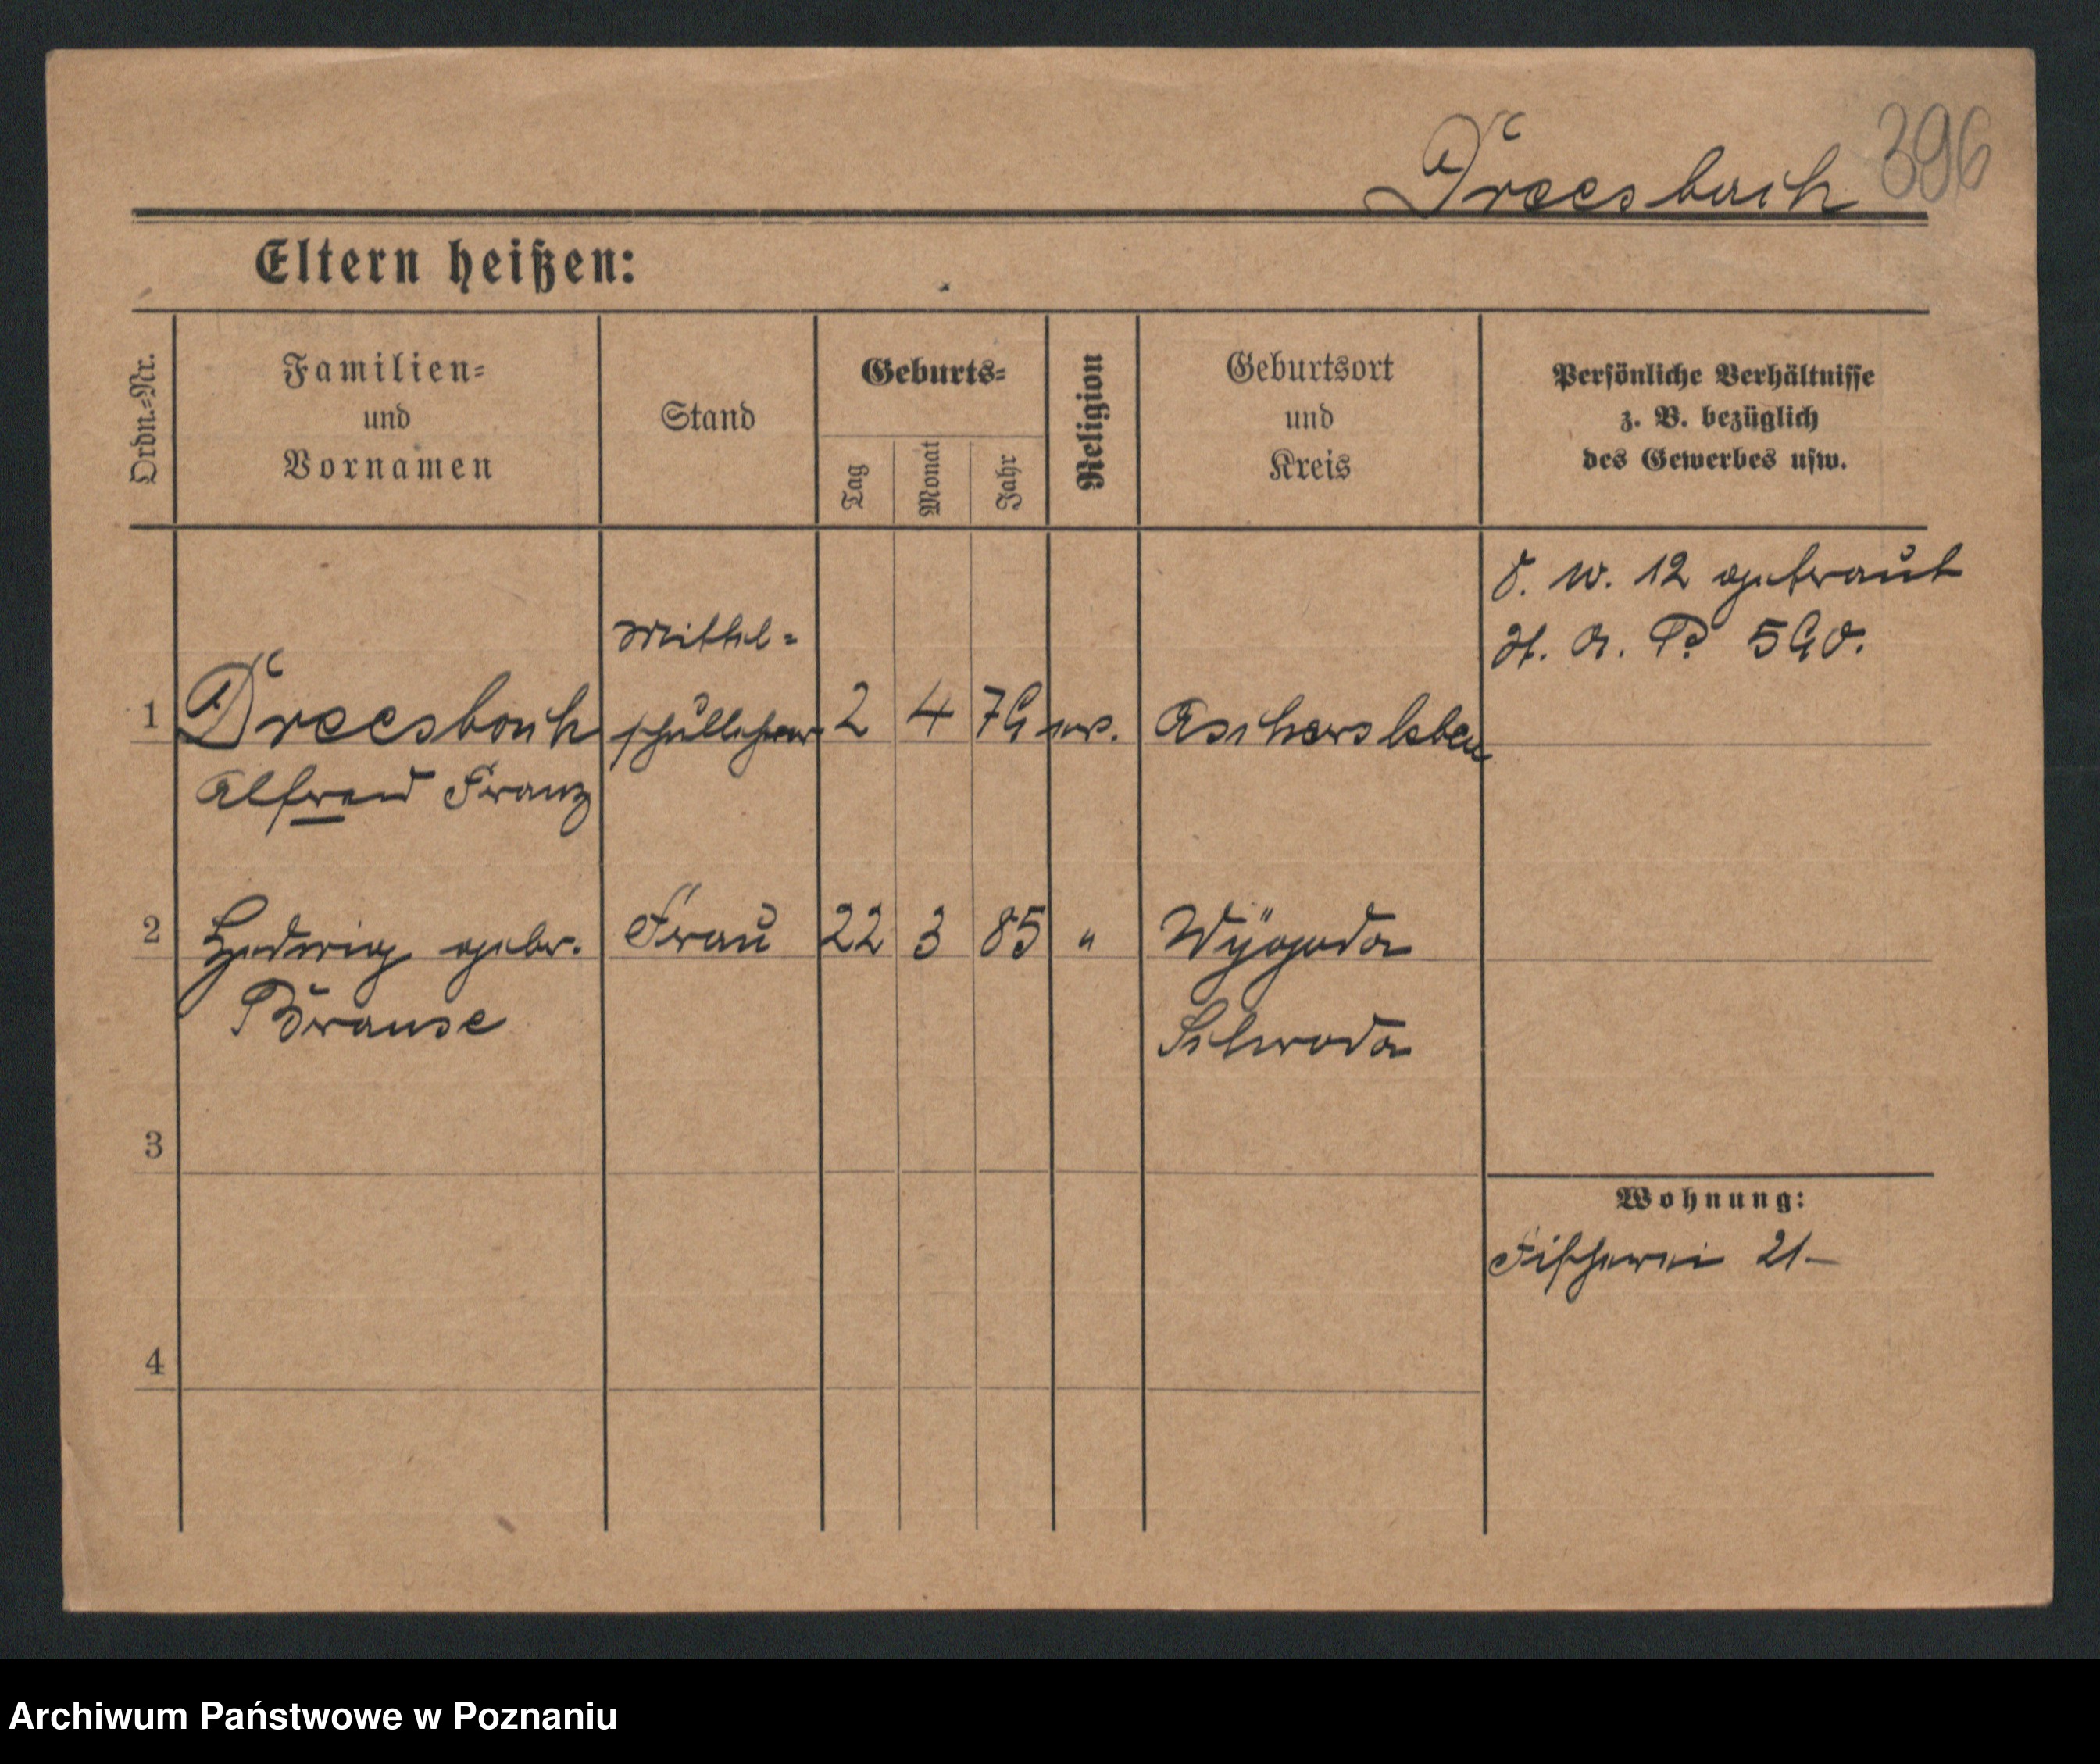 Dreesbach 396
Eltern heißen:
Ordn.=Nr.
Familien=
und
Vornamen
Stand
Geburts=
Tag
Monat
Jahr
Religion
Geburtsort
und
Kreis
Persönliche Verhältnisse
z. B. bezüglich
des Gewerbes usw.
12 getraut
H. A. P.
Mittel=
1 Dreesbach schullehrer 2 4 79 ev. Aschersleben
Alfred Franz
2 Hedwig gebr. Frau 22 3 85 " Wÿgoda
Brause Schroda
3
Wohnung:
Fischerei 21
4
Archiwum Państwowe w Poznaniu